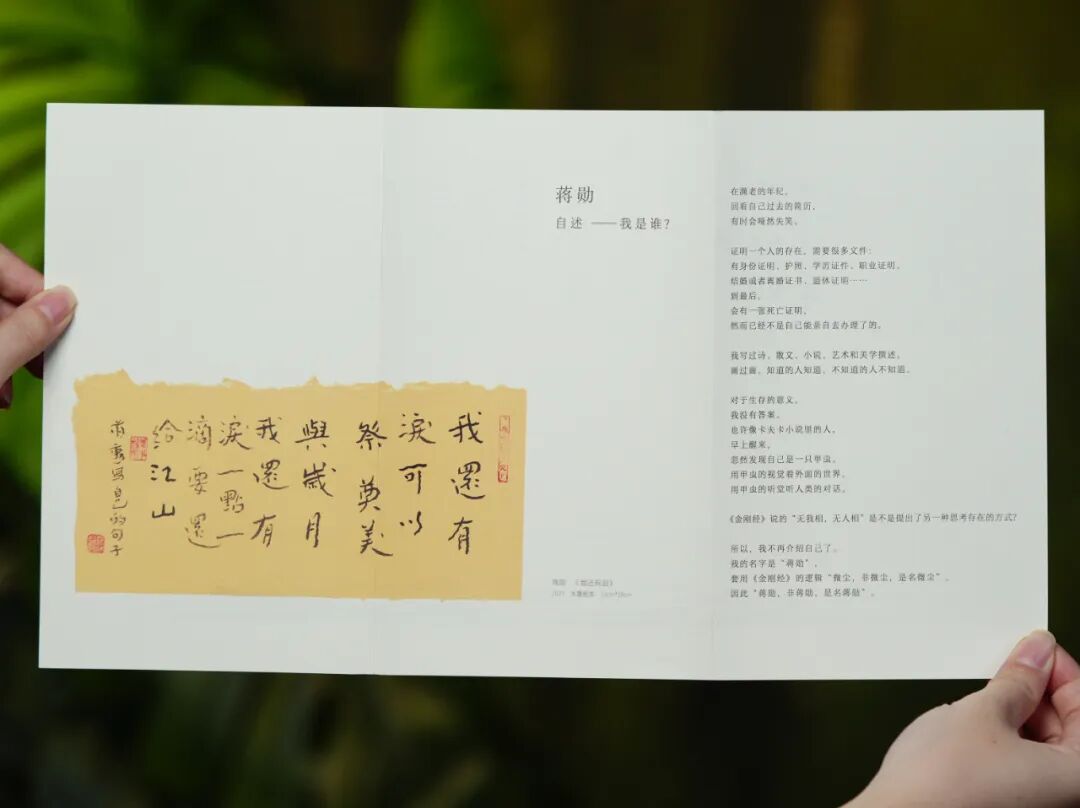 我還有
淚可以
祭奠美
與歲月
我還有
淚一點一
滴要還
給江山
蔣勳寫自己的句子
蒋勋
自述 ——我是谁？
《我还有泪》
水墨纸本
在濒老的年纪，
回看自己过去的简历，
有时会哑然失笑。
证明一个人的存在，需要很多文件：
有身份证明、护照、学历证件、职业证明，
结婚或者离婚证书、退休证明……
到最后，
会有一张死亡证明，
然而已经不是自己能亲自去办理了的。
我写过诗、散文、小说、艺术和美学撰述，
画过画，知道的人知道，不知道的人不知道。
对于生存的意义，
我没有答案，
也许像卡夫卡小说里的人，
早上醒来，
忽然发现自己是一只甲虫，
用甲虫的视觉看外面的世界，
用甲虫的听觉听人类的对话。
《金刚经》说的“无我相，无人相”是不是提出了另一种思考存在的方式？
所以，我不再介绍自己了。
我的名字是“蒋勋”，
套用《金刚经》的逻辑“微尘，非微尘，是名微尘”，
因此“蒋勋，非蒋勋，是名蒋勋”。